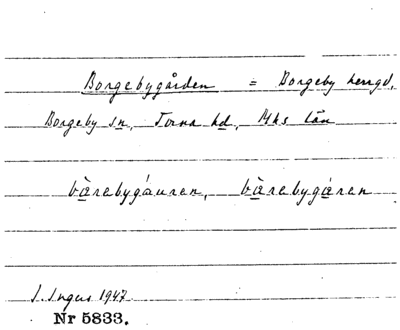 Borgebygården = Borgeby herrgd,
Borgeby sn, Torna hd, Mhs län
bàrebygáuren, bàrebygáren
S. Ingers 1947
Nr 5833.